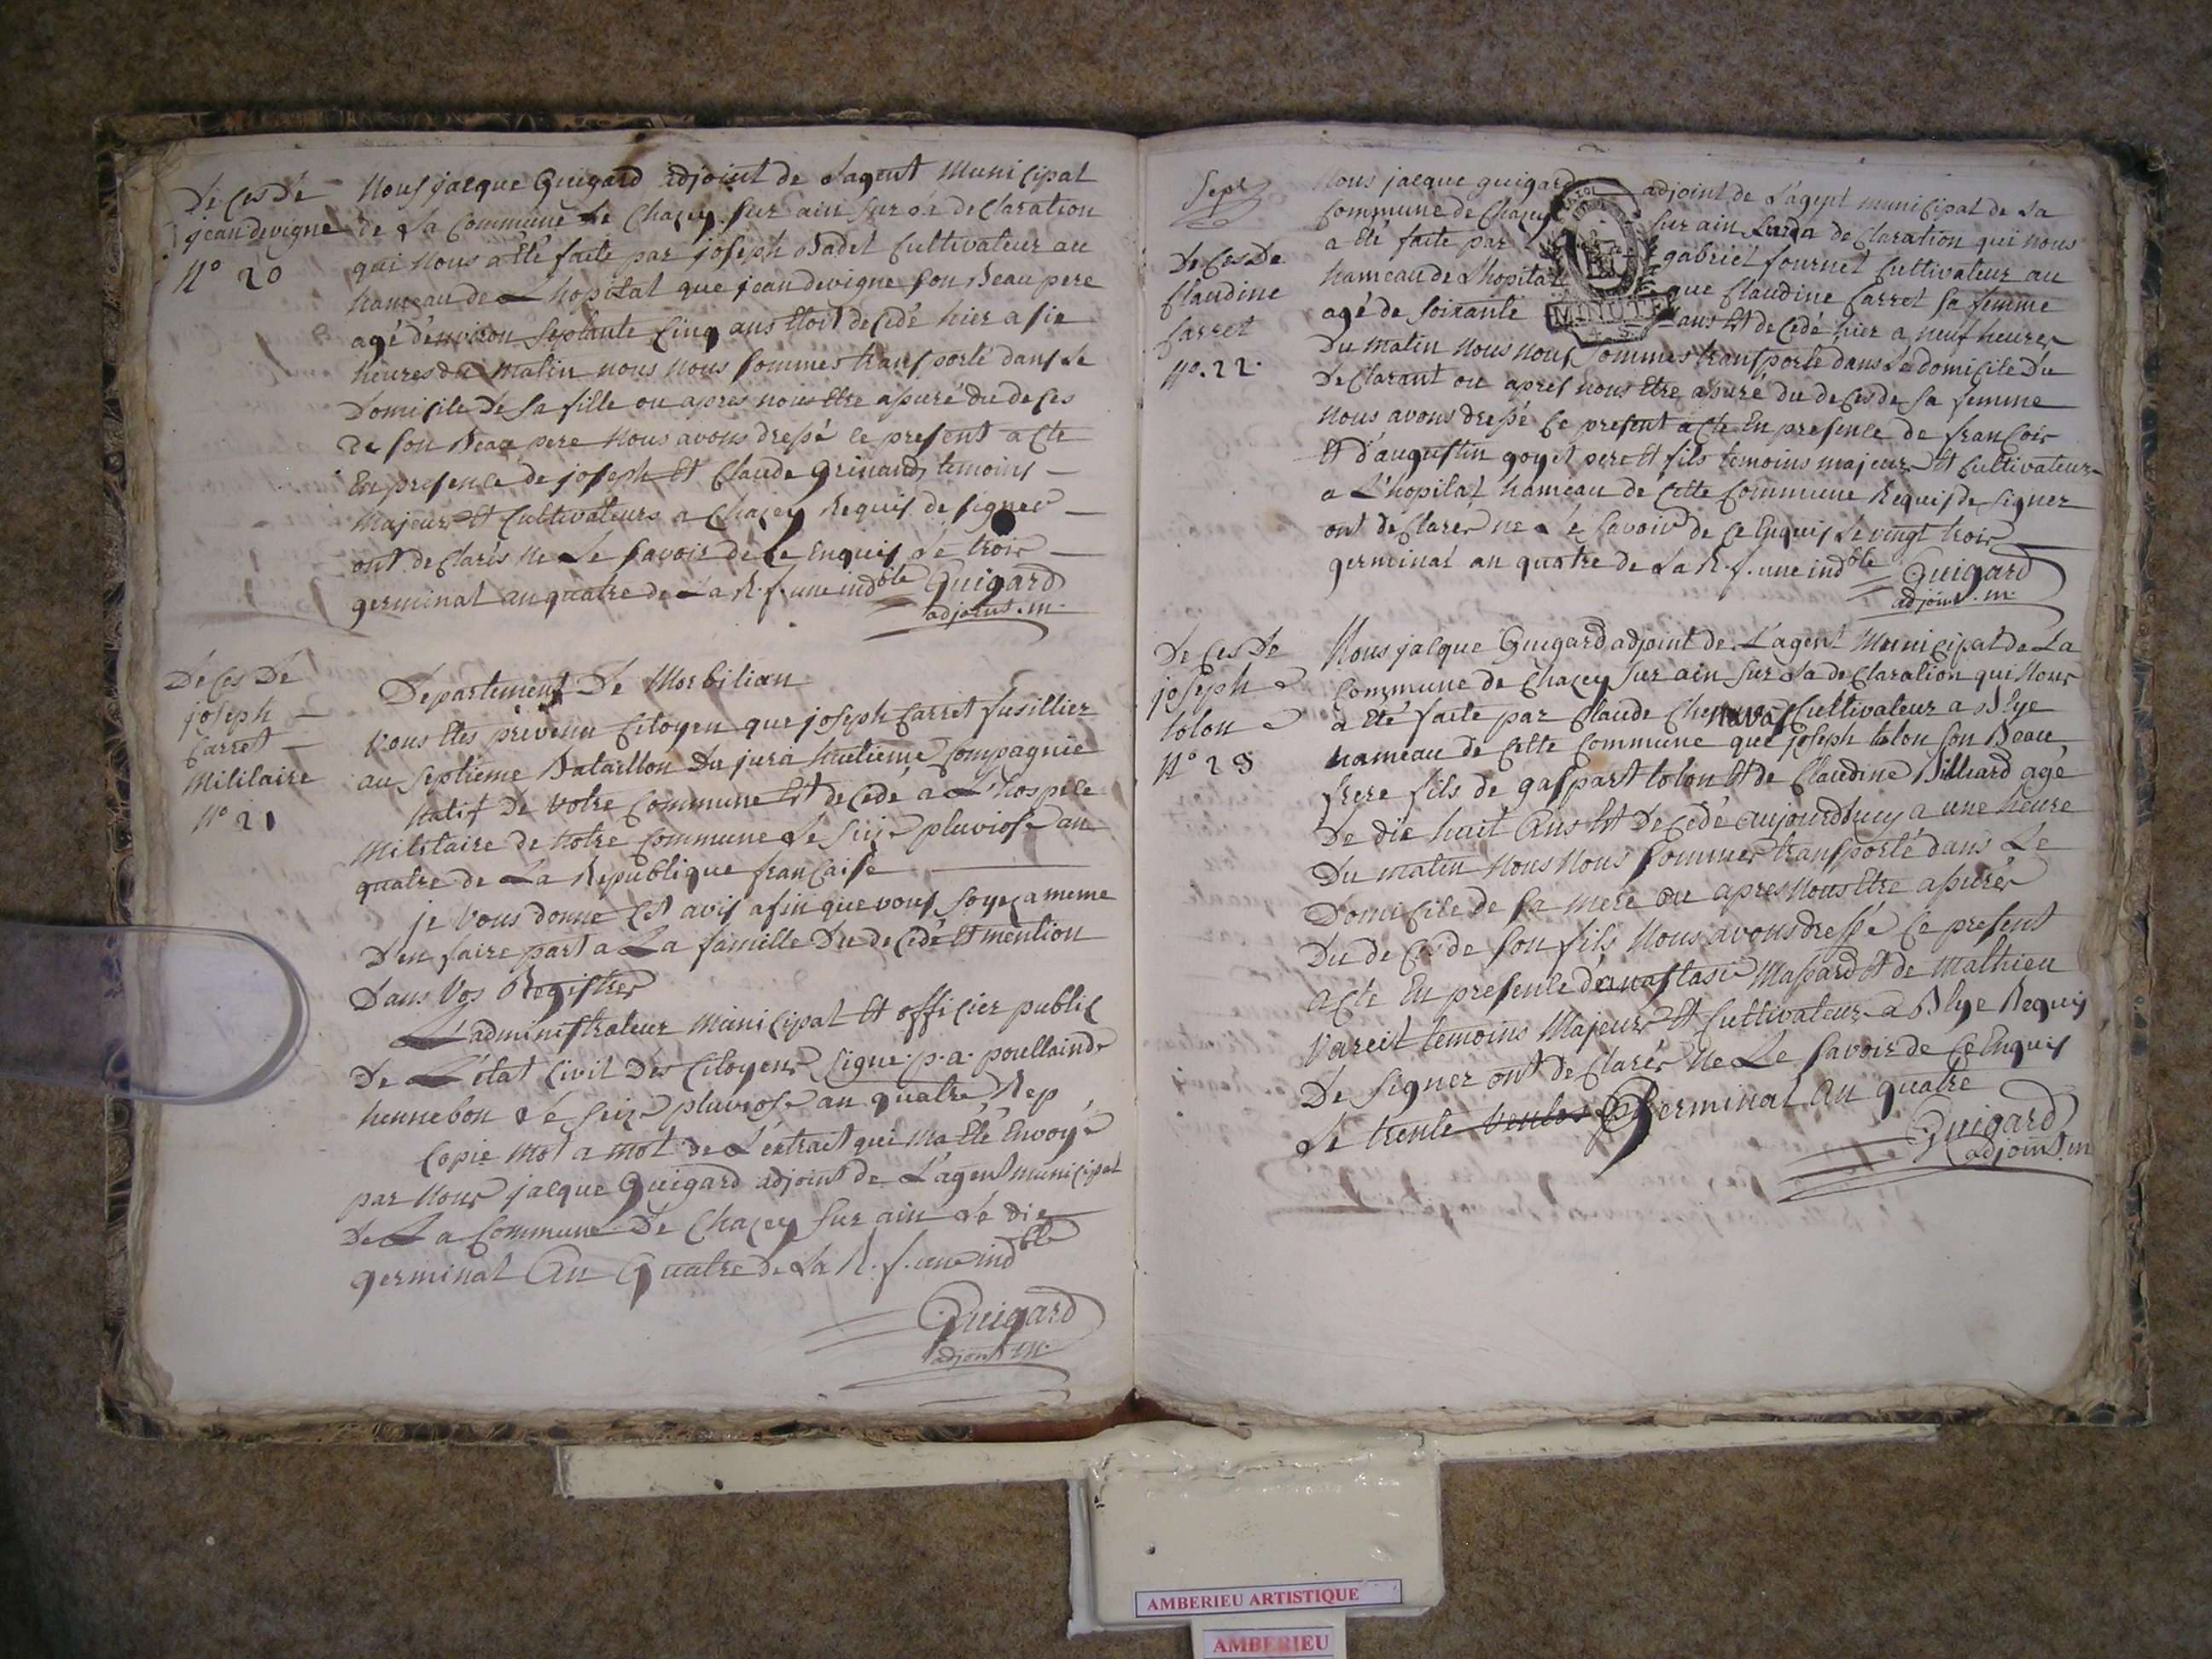 Deces De
jean devigne
N° 20
Nous jacque Guigard adjoint de Lagent Municipal
de La Commune de Chazey sur ain sur La declaration
qui Nous a Eté faite par joseph Badet Cultivateur au
hameau de L'hopital que jean devigne son Beau pere
agé d'environ Septante Cinq ans Etoit decedé hier a six
heures du Matin nous nous sommes transporté dans Le
Domicile de sa fille ou apres nous Etre assuré du deces
de son Beau pere Nous avons dressé le present acte
En presence de joseph Et Claude Grinand temoins
Majeurs Et Cultivateurs a Chazey Requis de signer
ont declarés Ne Le savoir de Ce Enquis Le trois
germinal an quatre de La R. f. une ind ble Guigard
adjoint. m.
Deces De
joseph
Carret
Militaire
N° 21
Departement De Morbilian
Vous Etes prevenu Citoyen que joseph Carret fusillier
au septieme Bataillon du jura huitieme Compagnie
Natif De Votre Commune Est decedé a L'hospice
Militaire de Notre Commune Le seize pluviose an
quatre de La Republique francaise
je Vous donne Cet avis afin que vous soyez a meme
D'en faire part a La famille Du decedé Et mention
Dans Vos Registres
L'administrateur Municipal Et officier public
De L'état Civil Des Citoyens signe. p. a. poullainde
hennebon Le seize pluviose an quatre Rep
Copie Mot a mot de L'extrait qui Ma Eté Envoyé
par Nous jacque Guigard adjoint de L'agent municipal
De La Commune De Chazey sur ain Le dix
germinal An Quatre de La R. f. une ind ble
Guigard
adjoint m.
Sept
Deces De
Claudine
Carret
N°. 22.
Nous jacque guigard adjoint de L'agent municipal de La
Commune de Chazey sur ain sur La declaration qui nous
a Eté faite par gabriel fournet Cultivateur au
hameau de L'hopital que Claudine Carret sa femme
agé de soixante ans Est decedé hier a neuf heures
MINUTE
Du matin Nous nous sommes transporté dans Le domicile du
Declarant ou apres nous Etre assuré du deces de sa femme
Nous avons dressé Ce present acte En presence de francois
Et d'augustin goyet pere Et fils temoins majeurs Et Cultivateurs
a L'hopital hameau de Cette Commune Requis de signer
ont declarés ne Le savoir de Ce Enquis Le vingt trois
germinal an quatre de La R. f. une ind ble
Guigard
adjoint. m.
Deces De
joseph
tolon
N° 23
Nous jacque Guigard adjoint de L'agent Municipal de La
Commune de Chazey sur ain sur La declaration qui Nous
a Eté faite par Claude Chenavas Cultivateur a Blye
hameau de Cette Commune que joseph tolon son Beau
frere fils de gaspart tolon Et de Claudine Billiard agé
De dix huit Ans Est Decedé aujourdhuy a une heure
Du matin Nous Nous sommes transporté dans Le
Domicile de sa mere ou apres Nous Etre assurés
Du deces de son fils Nous avons dressé Ce present
acte En presence d'anastasie Massard Et de Mathieu
Vareit temoins Majeurs Et Cultivateurs a Blye Requis
De signer ont declarés Ne Le savoir de Ce Enquis
Le trente ventos Germinal An quatre
Guigard
adjoint. m
AMBERIEU ARTISTIQUE
AMBERIEU